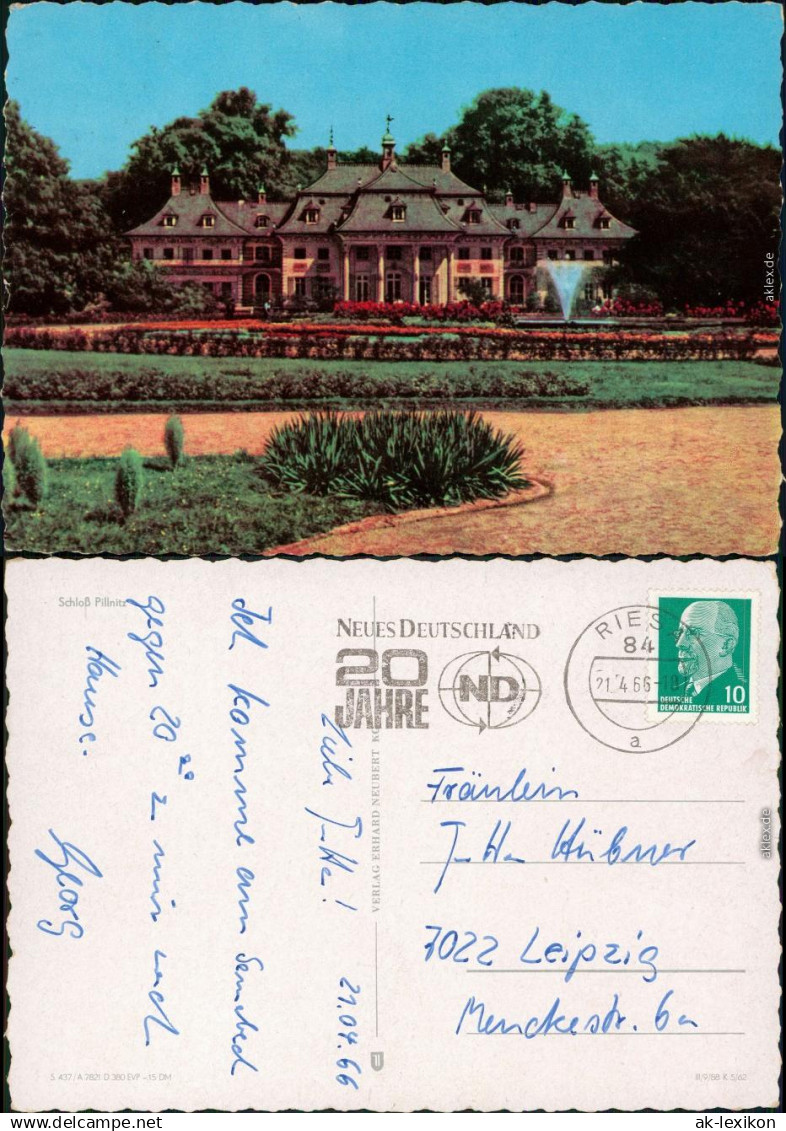 aklex.de
Schloß Pillnitz
NEUES DEUTSCHLAND
20
JAHRE
ND
RIESA
84
21.4.66-18
a
10
DEUTSCHE
DEMOKRATISCHE REPUBLIK
21.04.66
Liebe J-He!
Ich komme am Sonnabend
gegen 20°° zu mir nach
Hause.
Georg
VERLAG ERHARD NEUBERT
Fräulein
J-H- Hübner
7022 Leipzig
Menckestr. 6a
aklex.de
S 437/A 7821 D 380 EVP –15 DM
III/9/88 K 5/62
ak-lexikon